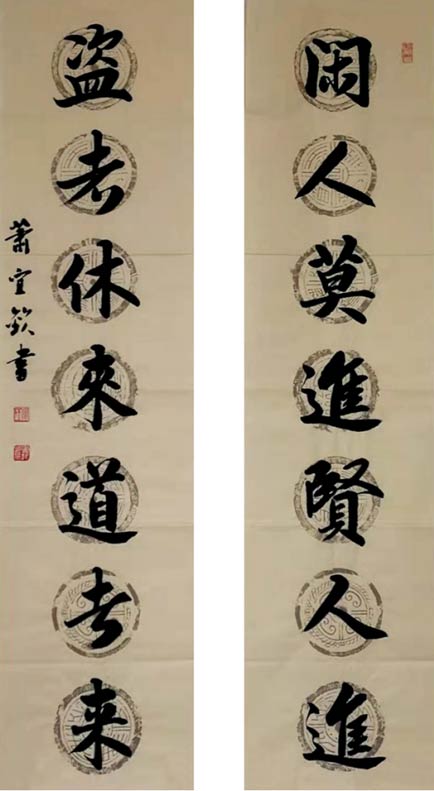 闲人莫進賢人進
盗者休來道者来
蕭宜欽書